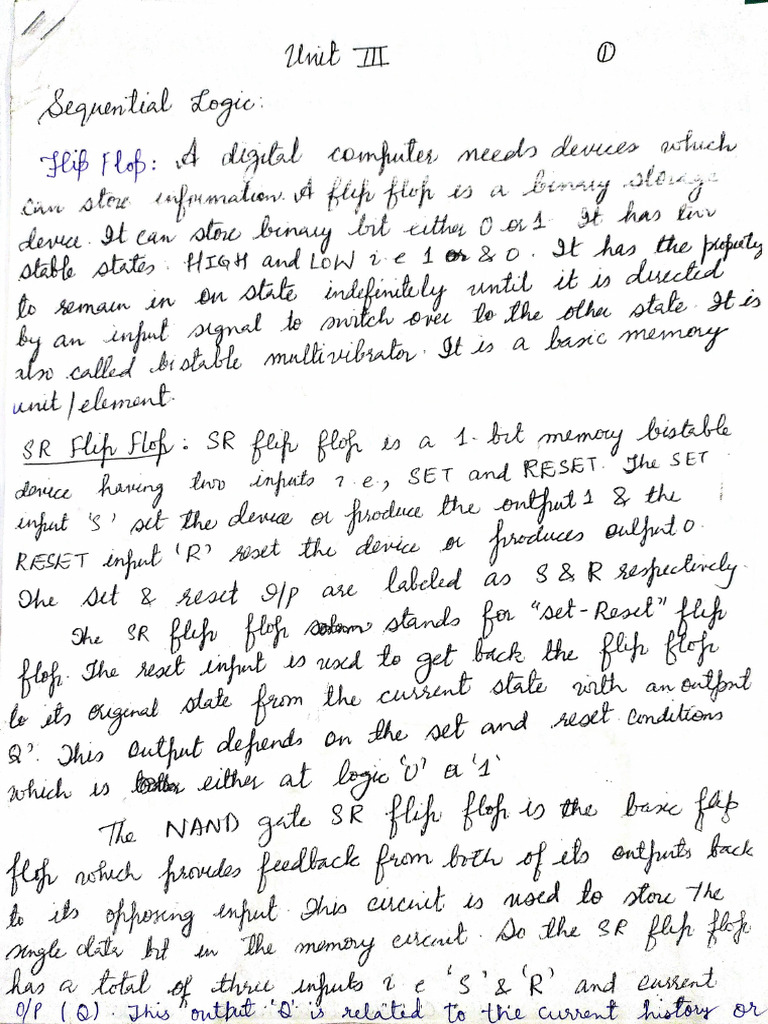 Unit III
①
Sequential Logic:
Flip Flop: A digital computer needs devices which
can store information. A flip flop is a binary storage
device. It can store binary bit either 0 or 1. It has two
stable states. HIGH and LOW i e 1 & 0. It has the property
to remain in on state indefinitely until it is directed
by an input signal to switch over to the other state. It is
also called bistable multivibrator. It is a basic memory
unit/element.
SR Flip Flop: SR flip flop is a 1-bit memory bistable
device having two inputs i.e., SET and RESET. The SET
input 'S' set the device or produce the output 1 & the
RESET input 'R' reset the device or produces output 0.
The set & reset I/P are labeled as S & R respectively.
The SR flip flop stands for "set-Reset" flip
flop. The reset input is used to get back the flip flop
to its original state from the current state with an output
Q'. This output depends on the set and reset conditions
which is either at logic '0' or '1'
The NAND gate SR flip flop is the basic flip
flop which provides feedback from both of its outputs back
to its opposing input. This circuit is used to store the
single data bit in the memory circuit. So the SR flip flop
has a total of three inputs i e 'S' & 'R' and current
O/P (Q). This output 'Q' is related to the current history or